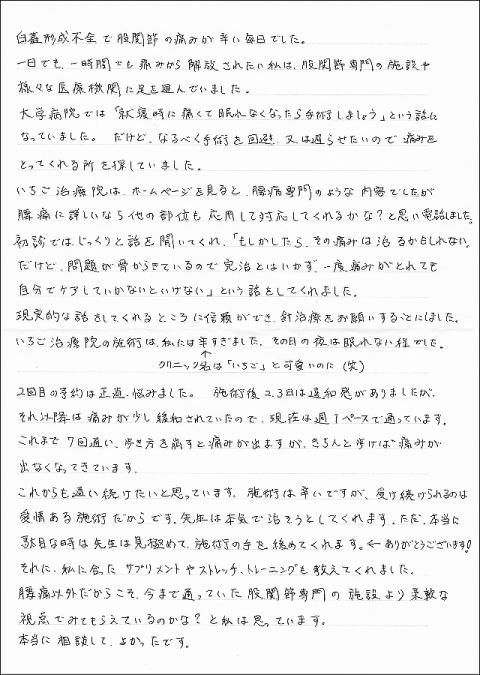 臼蓋形成不全で股関節の痛みが辛い毎日でした。
一日でも、一時間でも痛みから解放されたい私は、股関節専門の施設や
様々な医療機関に足を運んでいました。
大学病院では「就寝時に痛くて眠れなくなったら手術しましょう」という話に
なっていました。 だけど、なるべく手術を回避、又は遅らせたいので痛みを
とってくれる所を探していました。
いちご治療院は、ホームページを見ると、腰痛専門のような内容でしたが
腰痛に詳しいなら他の部位も応用して対応してくれるかな?と思い電話しました。
初診では、じっくりと話を聞いてくれ、「もしかしたら、その痛みは治るかもしれない。
だけど、問題が骨からきているので完治とはいかず、一度痛みがとれても
自分でケアしていかないといけない」という話をしてくれました。
現実的な話をしてくれるところに信頼ができ、針治療をお願いすることにしました。
いちご治療院の施術は、私には辛すぎました。その日の夜は眠れない程でした。
クリニック名は「いちご」と可愛いのに(笑)
2回目の予約は正直、悩みました。 施術後2、3日は違和感がありましたが、
それ以降は痛みが少し緩和されていたので、現在は週1ペースで通っています。
これまで7回通い、歩き方を崩すと痛みが出ますが、きちんと歩けば痛みが
出なくなってきています。
これからも通い続けたいと思っています。施術は辛いですが、受け続けられるのは
愛情ある施術だからです。先生は本気で治そうとしてくれます。ただ、本当に
駄目な時は先生は見極めて、施術の手を緩めてくれます。←ありがとうございます!
それに、私に合ったサプリメントやストレッチ、トレーニングも教えてくれました。
腰痛以外だからこそ、今まで通っていた股関節専門の施設より柔軟な
視点でみてもらえているのかな?と私は思っています。
本当に相談して、よかったです。